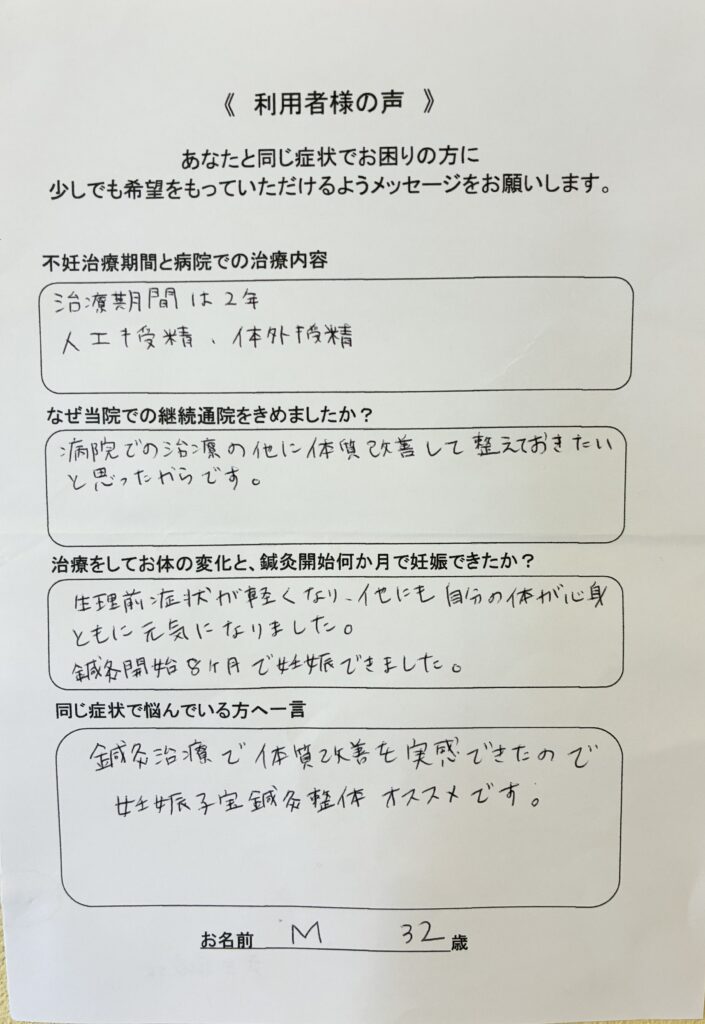 《 利用者様の声 》
あなたと同じ症状でお困りの方に
少しでも希望をもっていただけるようメッセージをお願いします。
不妊治療期間と病院での治療内容
治療期間は2年
人工授精、体外授精
なぜ当院での継続通院をきめましたか？
病院での治療の他に体質改善して整えておきたい
と思ったからです。
治療をしてお体の変化と、鍼灸開始何か月で妊娠できたか？
生理前症状が軽くなり、他にも自分の体が心身
ともに元気になりました。
鍼灸開始8ヶ月で妊娠できました。
同じ症状で悩んでいる方へ一言
鍼灸治療で体質改善を実感できたので
妊娠子宝鍼灸整体オススメです。
お名前 M 32歳